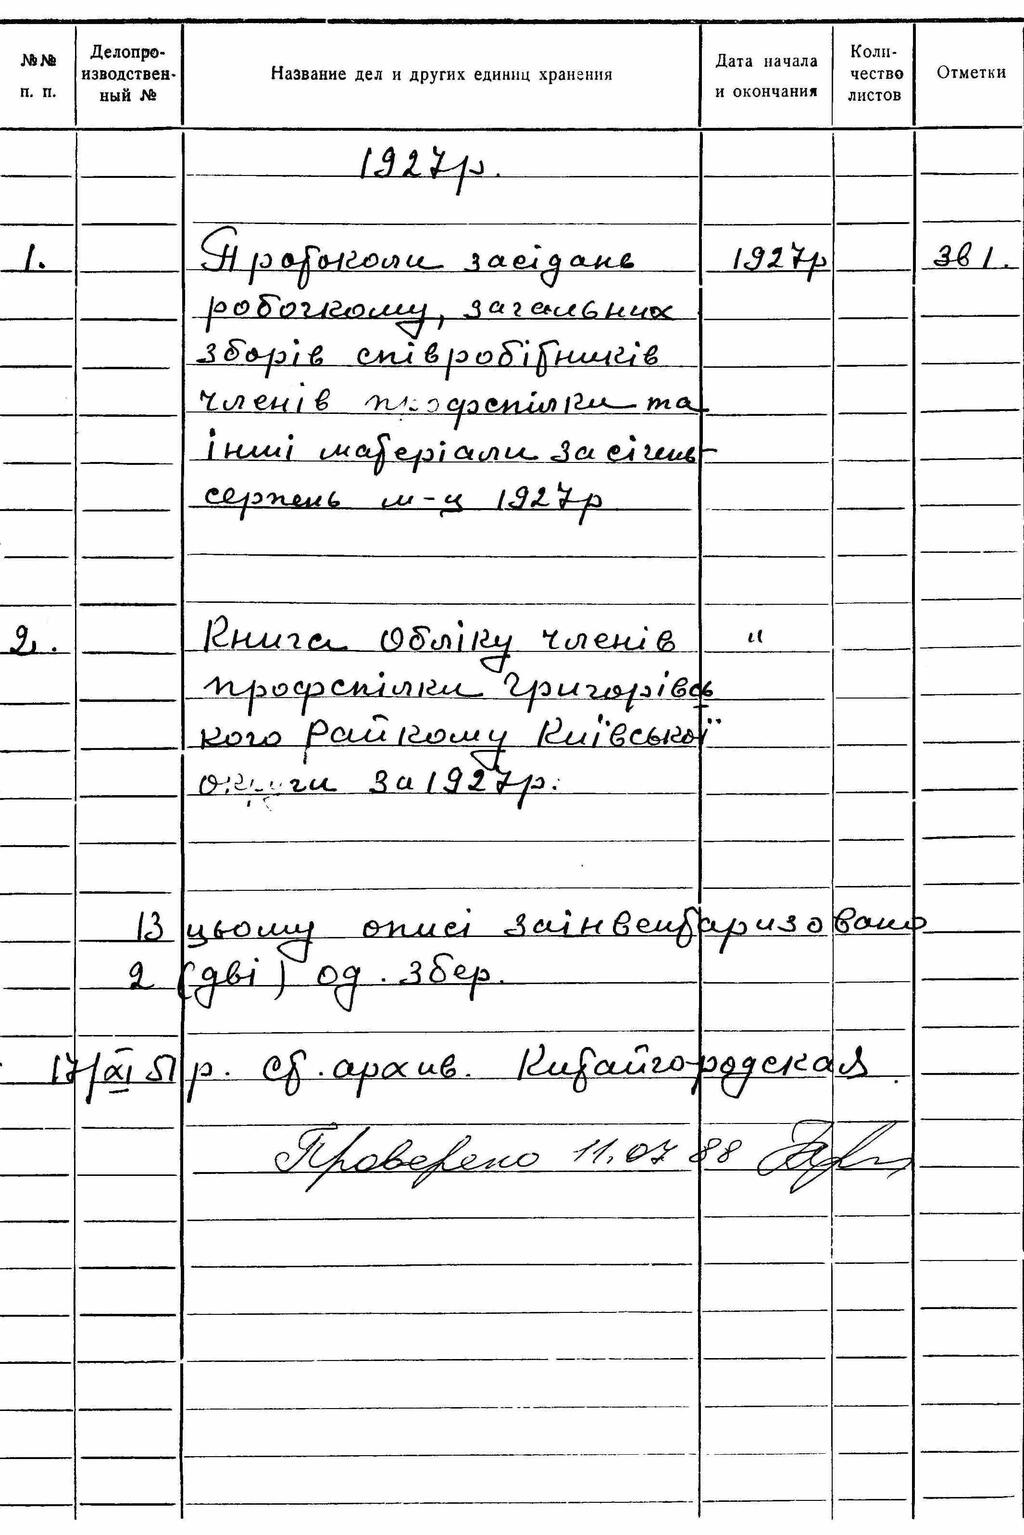 №№ п. п. Делопроизводственный № Название дел и других единиц хранения Дата начала и окончания Количество листов Отметки
1927р.
1. Протоколи засідань 1927р Зв 1.
робочкому, загальних
зборів співробітників
членів профспілки та
інші матеріали за січень-
серпень м-ц 1927р
2. Книга обліку членів "
профспілки Григорівсь
кого Райкому Київської
округи за 1927р.
В цьому описі заінвентаризовано
2 (дві) од. збер.
17/XI 51 р. ст. архив. Китайгородская.
Проверено 11.07 88